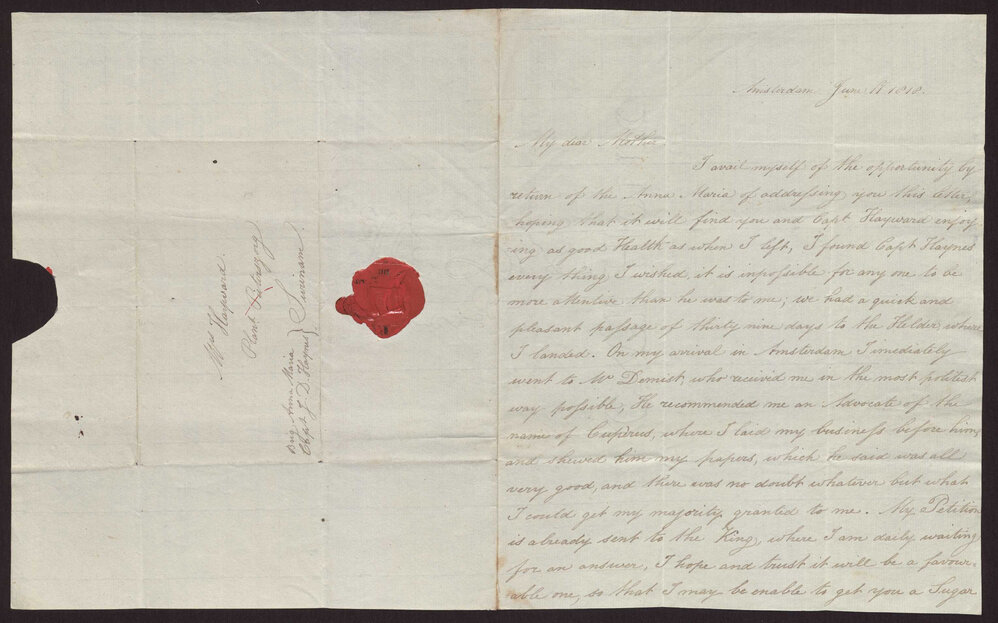 Mrs Hayward.
Plant
Brig Anna Maria
Capt J. D. Haynes } Suriname.
Amsterdam June 11 1818.
My dear Mother
I avail myself of the opportunity by
return of the Anna Maria of addressing you this letter,
hoping that it will find you and Capt Hayward enjoy
ing as good Health as when I left, I found Capt Haynes
every thing I wished, it is inpossible for any one to be
more attentive than he was to me; we had a quick and
pleasant passage of thirty nine days to the Helder where
I landed. On my arrival in Amsterdam I imediately
went to Mr Demist, who received me in the most politest
way possible, He recommended me an Advocate of the
name of Cuperus, where I laid my business before him,
and shewed him my papers, which he said was all
very good, and there was no doubt whatever but what
I could get my majority granted to me. My Petition
is already sent to the King, where I am daily waiting
for an answer, I hope and trust it will be a favour-
able one, so that I may be enable to get you a Sugar